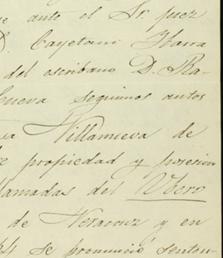 e ante el Sr. Juez
Cayetano Ibarra
del escribano D. Ra-
nueva seguimos autos
va Villanueva de
e propiedad y posesion
lamadas del Obero
de Veracruz y en
se pronunció senten-